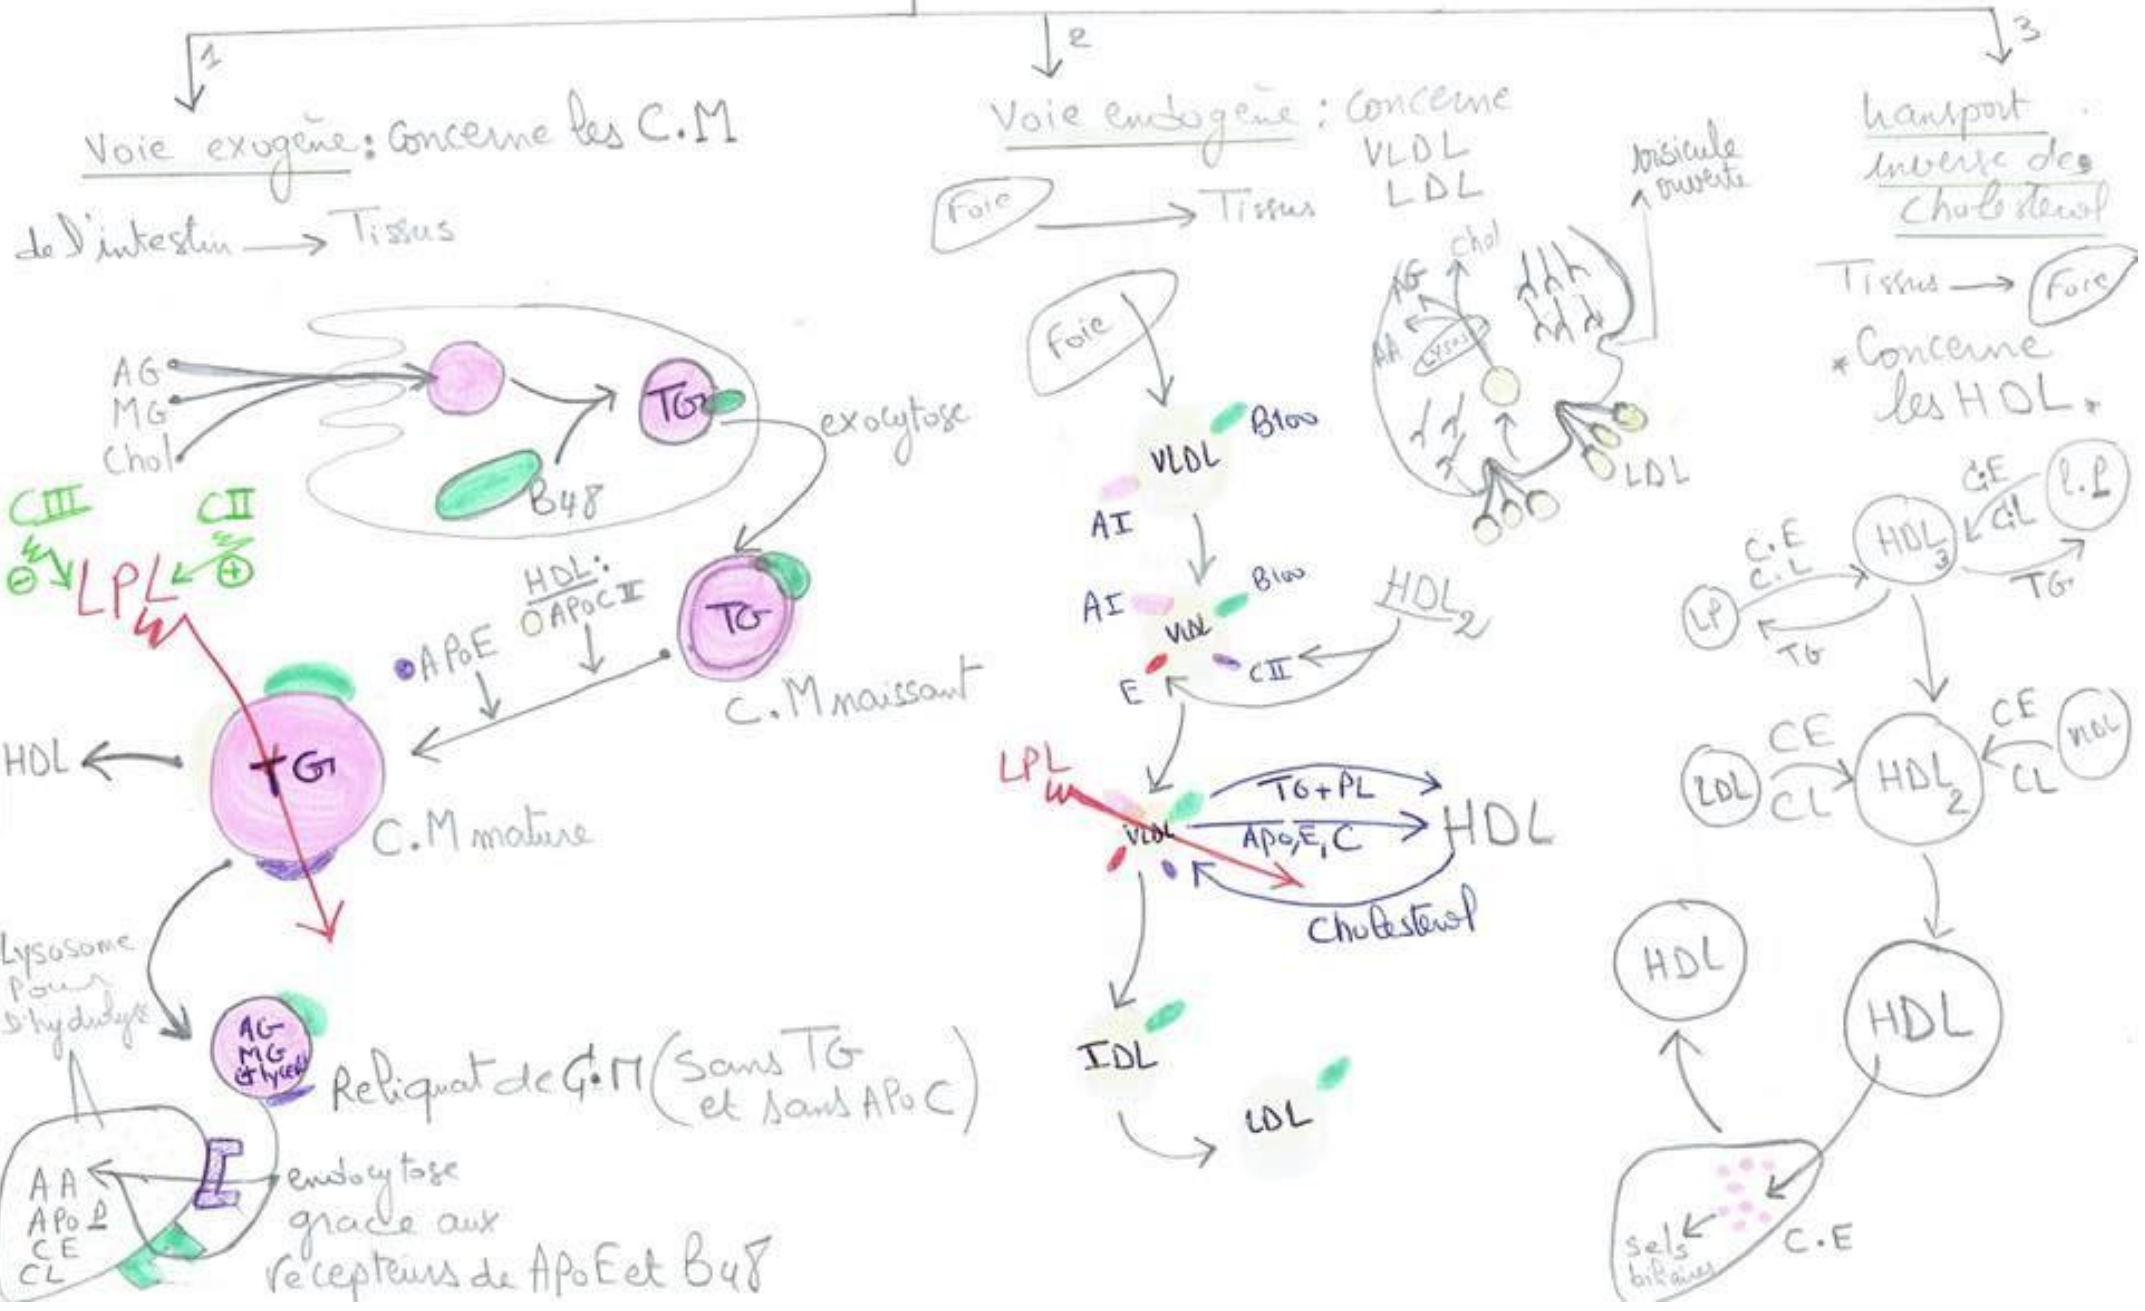 1
Voie exogène: Concerne les C.M
de l'intestin → Tissus
AG
MG
Chol
TG
B48
exocytose
CIII
CII
⊖
⊕
LPL
HDL:
APOCII
APOE
TG
C.M naissant
HDL
TG
C.M mature
Lysosome
pour
AG
MG
Reliquat de C.M (Sans TG
et sans APOC)
AA
APO
CE
CL
endocytose
grace aux
récepteurs de APOE et B48
2
Voie endogène: Concerne
VLDL
LDL
Foie → Tissus
Foie
VLDL
B100
AI
AI
B100
VLDL
E
CII
HDL2
LPL
VLDL
TG+PL
Apo, E, C
HDL
Cholesterol
IDL
LDL
ouverte
chol
AG
AA
Lysos
LDL
3
transport
inverse des
cholesterol
Tissus → Foie
*Concerne
les HDL.
C.E
C.L
HDL3
TG
C.E
C.L
LP
TG
LDL
CE
CL
HDL2
CE
CL
HDL
HDL
C.E
sels
biliaires